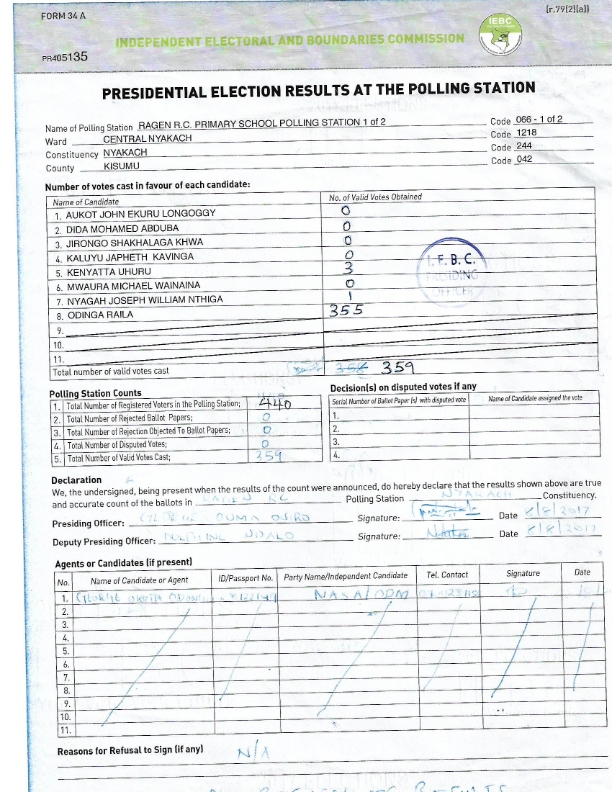 FORM 34 A
[r.79(2)(a)]
IEBC
INDEPENDENT ELECTORAL AND BOUNDARIES COMMISSION
PR405135
PRESIDENTIAL ELECTION RESULTS AT THE POLLING STATION
Name of Polling Station RAGEN R.C. PRIMARY SCHOOL POLLING STATION 1 of 2 Code 066 - 1 of 2
Ward CENTRAL NYAKACH Code 1218
Constituency NYAKACH Code 244
County KISUMU Code 042
Number of votes cast in favour of each candidate:
Name of Candidate No. of Valid Votes Obtained
1. AUKOT JOHN EKURU LONGOGGY 0
2. DIDA MOHAMED ABDUBA 0
3. JIRONGO SHAKHALAGA KHWA 0
4. KALUYU JAPHETH KAVINGA 0
5. KENYATTA UHURU 3
6. MWAURA MICHAEL WAINAINA 0
7. NYAGAH JOSEPH WILLIAM NTHIGA 1
8. ODINGA RAILA 355
9.
10.
11.
I.E.B.C.
PRESIDING
OFFICER
Total number of valid votes cast 359
Polling Station Counts
1. Total Number of Registered Voters in the Polling Station; 440
2. Total Number of Rejected Ballot Papers; 0
3. Total Number of Rejection Objected To Ballot Papers; 0
4. Total Number of Disputed Votes; 0
5. Total Number of Valid Votes Cast; 359
Decision(s) on disputed votes if any
Serial Number of Ballot Paper (s) with disputed vote Name of Candidate assigned the vote
1.
2.
3.
4.
Declaration
We, the undersigned, being present when the results of the count were announced, do hereby declare that the results shown above are true
and accurate count of the ballots in RAGEN RC Polling Station NYAKACH Constituency.
Presiding Officer: OUMA Signature: Date 8/8/2017
Deputy Presiding Officer: Signature: Date 8/8/2017
Agents or Candidates (if present)
No. Name of Candidate or Agent ID/Passport No. Party Name/Independent Candidate Tel. Contact Signature Date
1. NASA/ODM
2.
3.
4.
5.
6.
7.
8.
9.
10.
11.
Reasons for Refusal to Sign (if any) N/A